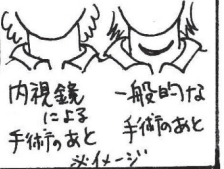 内視鏡
による
手術のあと
一般的な
手術のあと
※イメージ